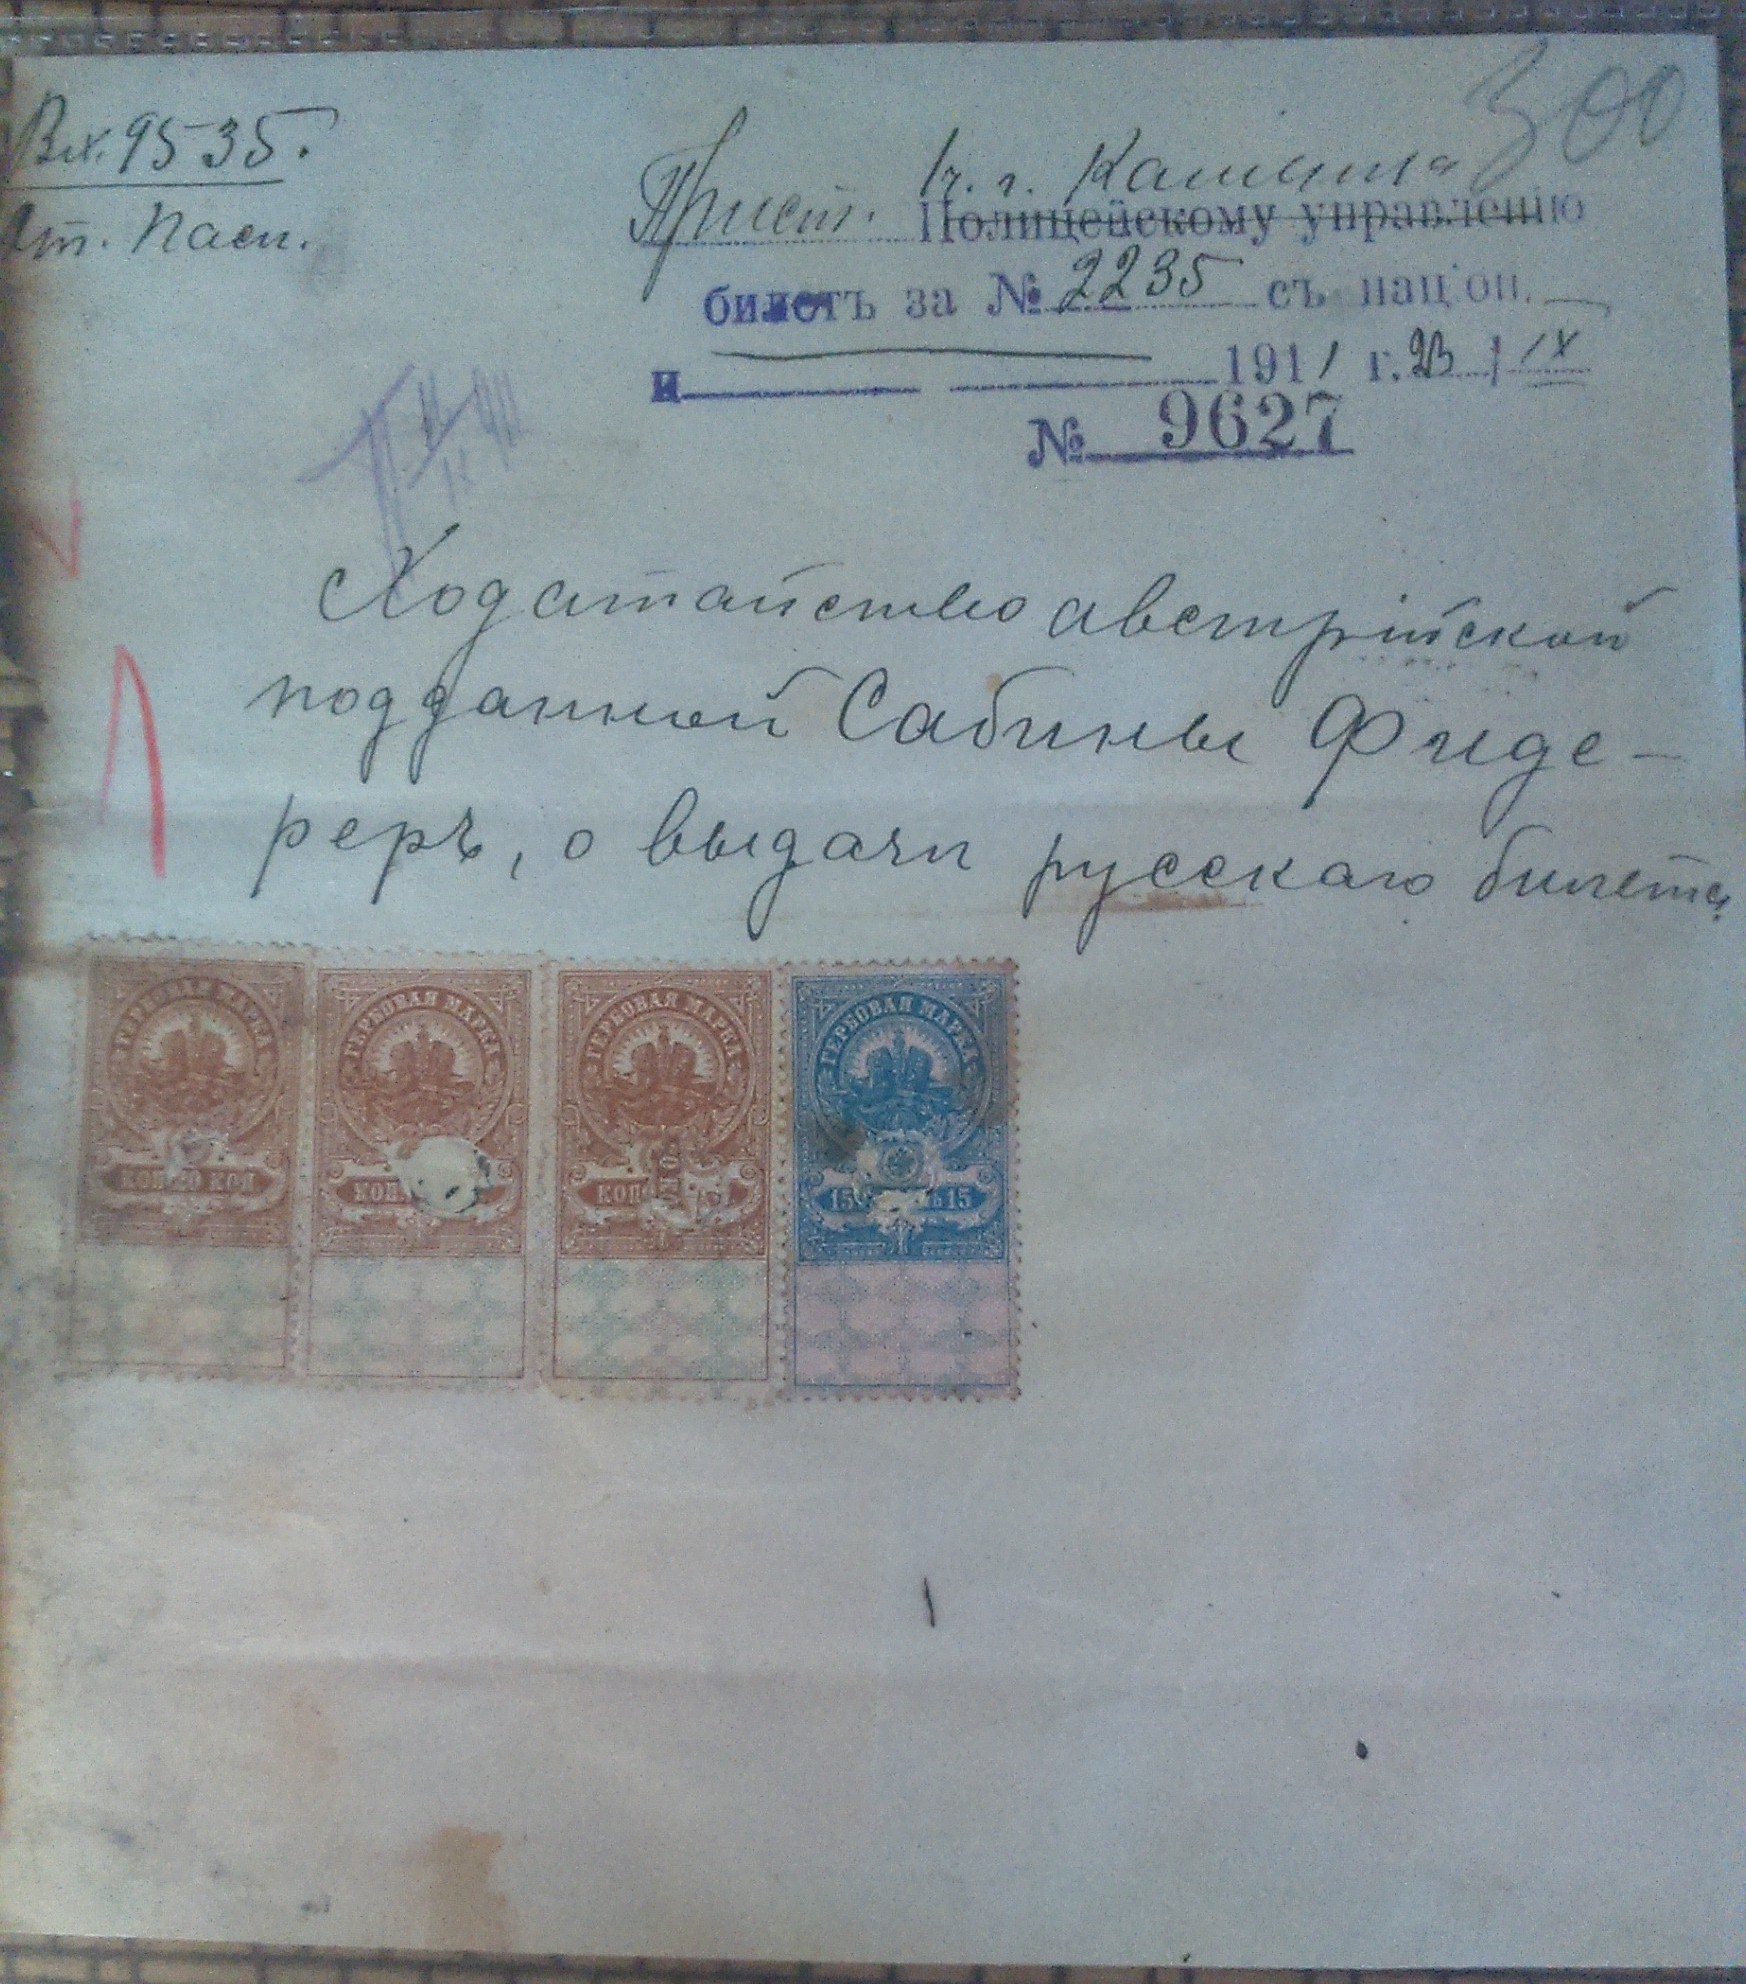 300
Вх. 9535.
От. Пасп.
Прист. 1 ч. г. Калиша
Полицейскому управленію
билетъ за № 2235 съ націон.
и 1911 г. 23 / IX
№ 9627
Ходатайство австрійской
подданной Сабины Фиде-
реръ, о выдачи русскаго билета
ГЕРБОВАЯ МАРКА ГЕРБОВАЯ МАРКА ГЕРБОВАЯ МАРКА ГЕРБОВАЯ МАРКА
КОП КОП КОП. КОП 15 15